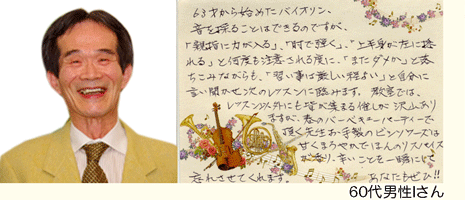 63才から始めたバイオリン、
音を採ることはできるのですが、
「親指に力が入る」、「肘で弾く」、「上半身が左に捻
れる」と何度も注意される度に、「またダメか」と落
ちこみながらも、「習い事は厳しい程よい」と自分に
言い聞かせ次のレッスンに臨みます。教室では、
レッスン以外にも皆が集まる催しが沢山あり
ますが、春のバーベキューパーティーで
頂く先生お手製の
甘くまろやかでほんのりスパイス
が香り、辛いことも一瞬にして
忘れさせてくれます。
あなたもぜひ!!
60代男性Iさん